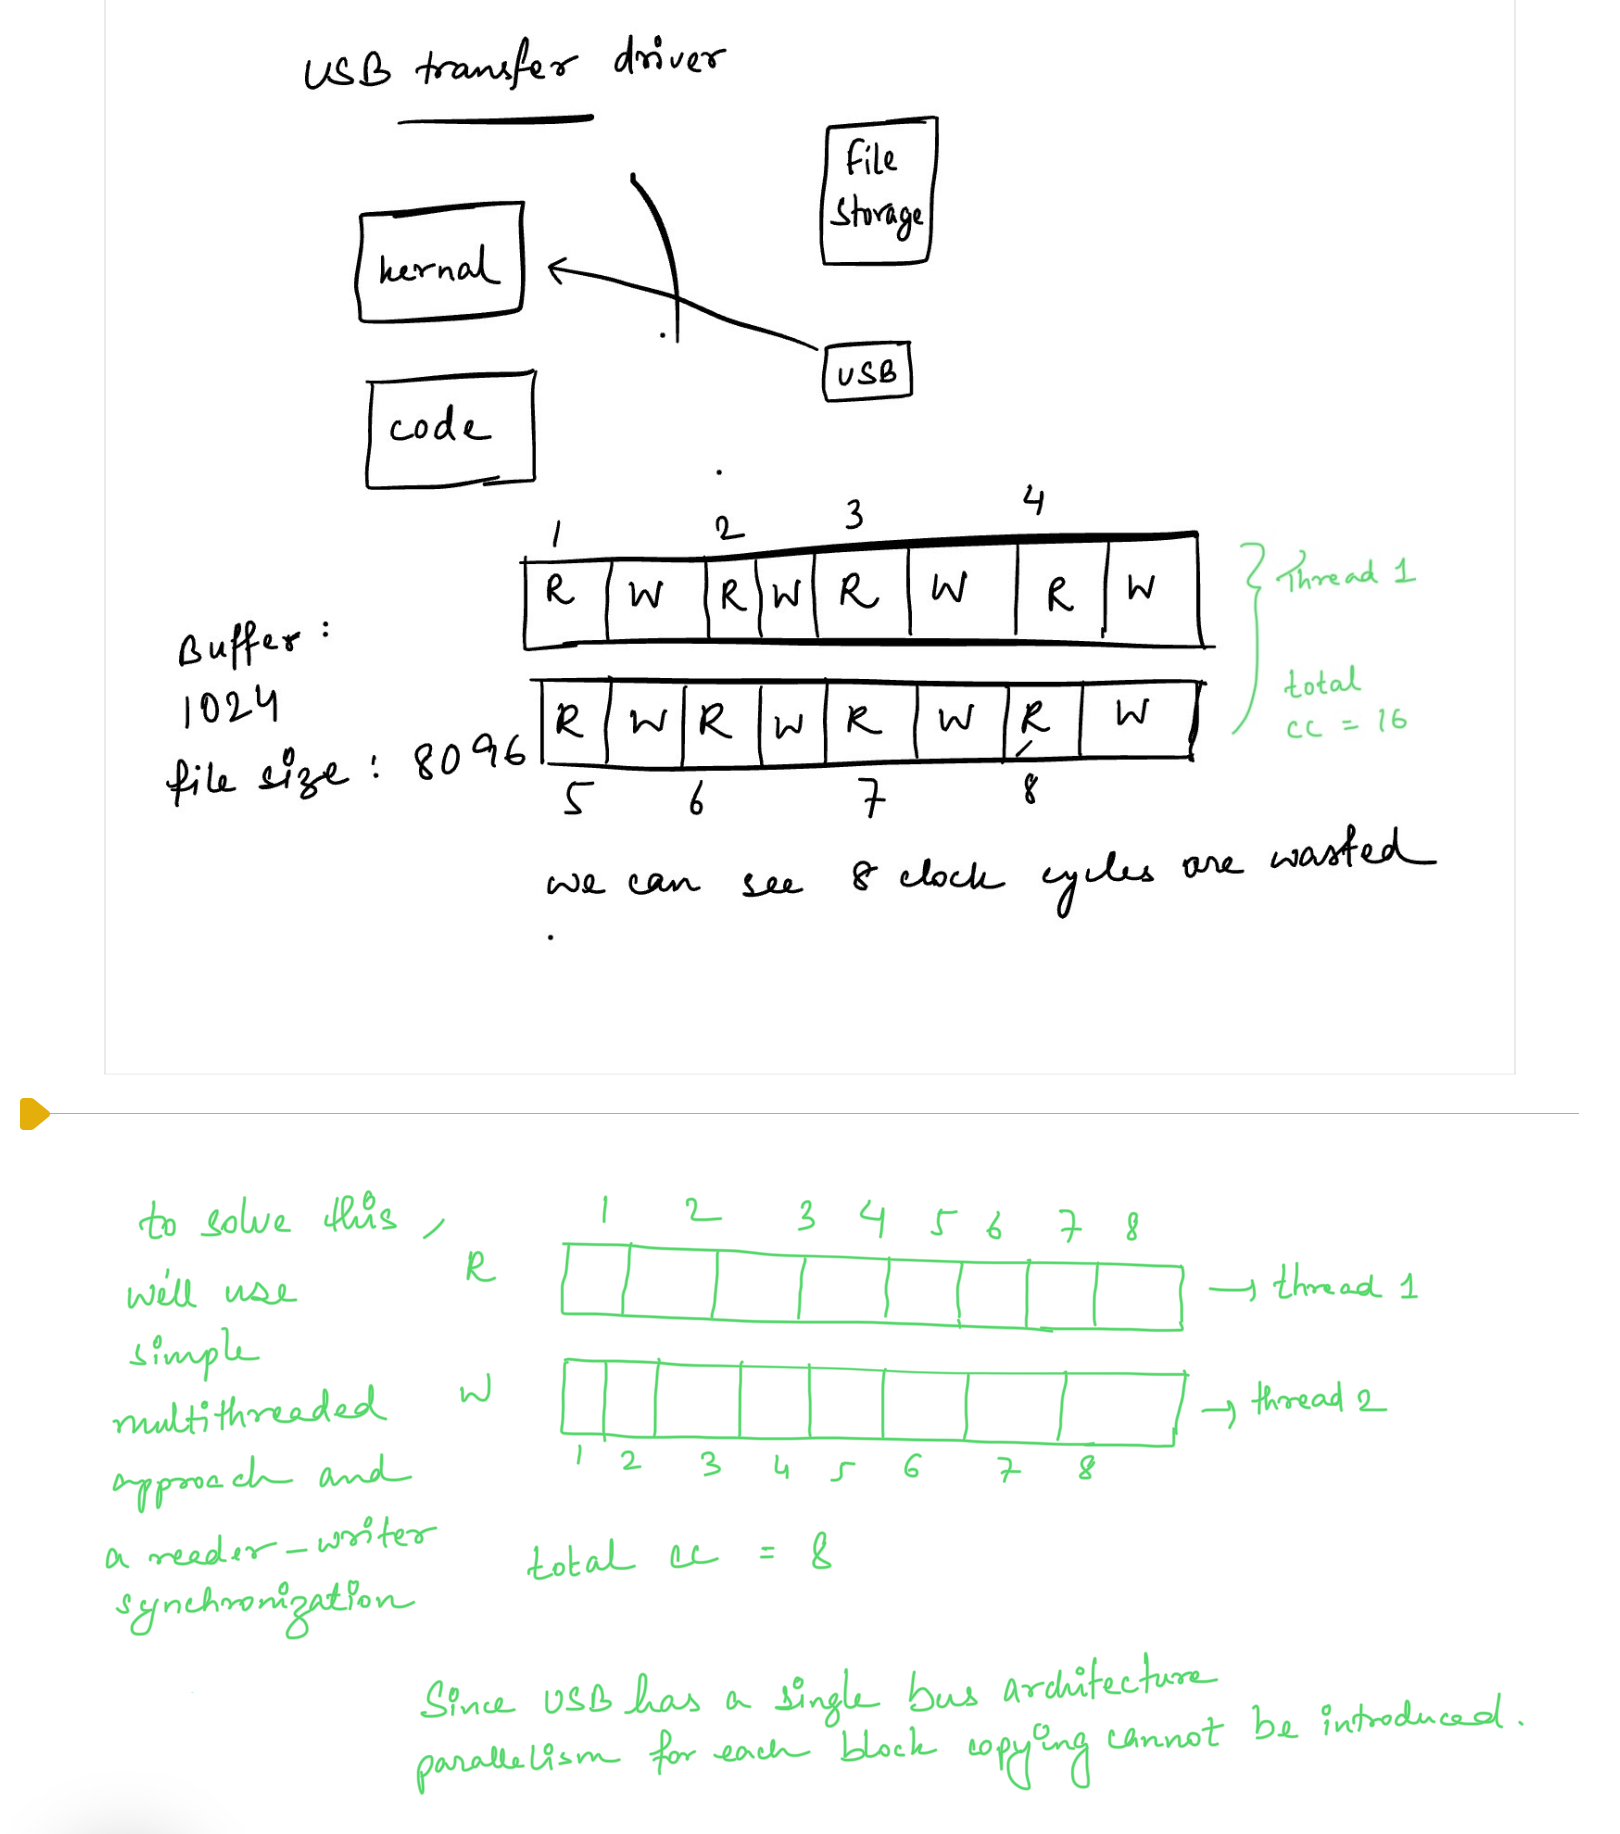 USB transfer driver
file
storage
kernal
USB
code
1 2 3 4
R W R W R W R W
Thread 1
Buffer :
1024
file size : 8096
R W R W R W R W
total
cc = 16
5 6 7 8
we can see 8 clock cycles are wasted
to solve this,
we'll use
simple
multithreaded
approach and
a reeder-writer
synchronization
1 2 3 4 5 6 7 8
R
→ thread 1
W
→ thread 2
1 2 3 4 5 6 7 8
total cc = 8
Since USB has a single bus architecture
parallelism for each block copying cannot be introduced.